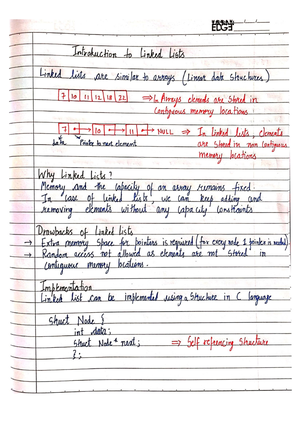 Introduction to Linked Lists
Linked lists are similar to arrays (Linear data structures)
7 10 11 12 18 22 ⇒ In Arrays elements are stored in
contiguous memory locations.
7 → 10 → 11 → NULL ⇒ In linked lists, elements
are stored in non contiguous
data Pointer to next element memory locations
Why Linked Lists?
Memory and the capacity of an array remains fixed.
In case of linked lists, we can keep adding and
removing elements without any capacity constraints
Drawbacks of Linked Lists
→ Extra memory space for pointers is required (for every node 1 pointer is needed)
→ Random access not allowed as elements are not stored in
contiguous memory locations.
Implementation
Linked list can be implemented using a structure in C language
Struct Node {
int data;
Struct Node* next; ⇒ Self referencing structure
};